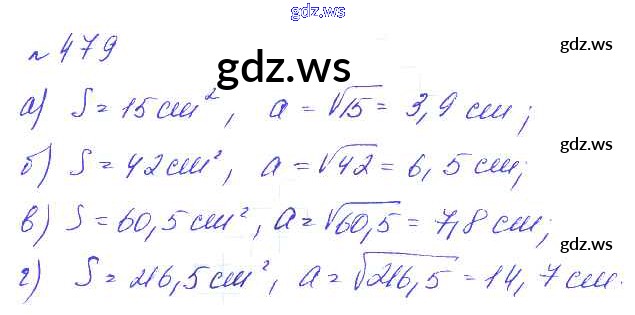 gdz.ws
№ 479
gdz.ws
gdz.ws
а) S = 15 см², a = √15 = 3,9 см;
б) S = 42 см², a = √42 = 6,5 см;
gdz.ws
в) S = 60,5 см², a = √60,5 = 7,8 см;
gdz.ws
г) S = 216,5 см², a = √216,5 = 14,7 см.
gdz.ws